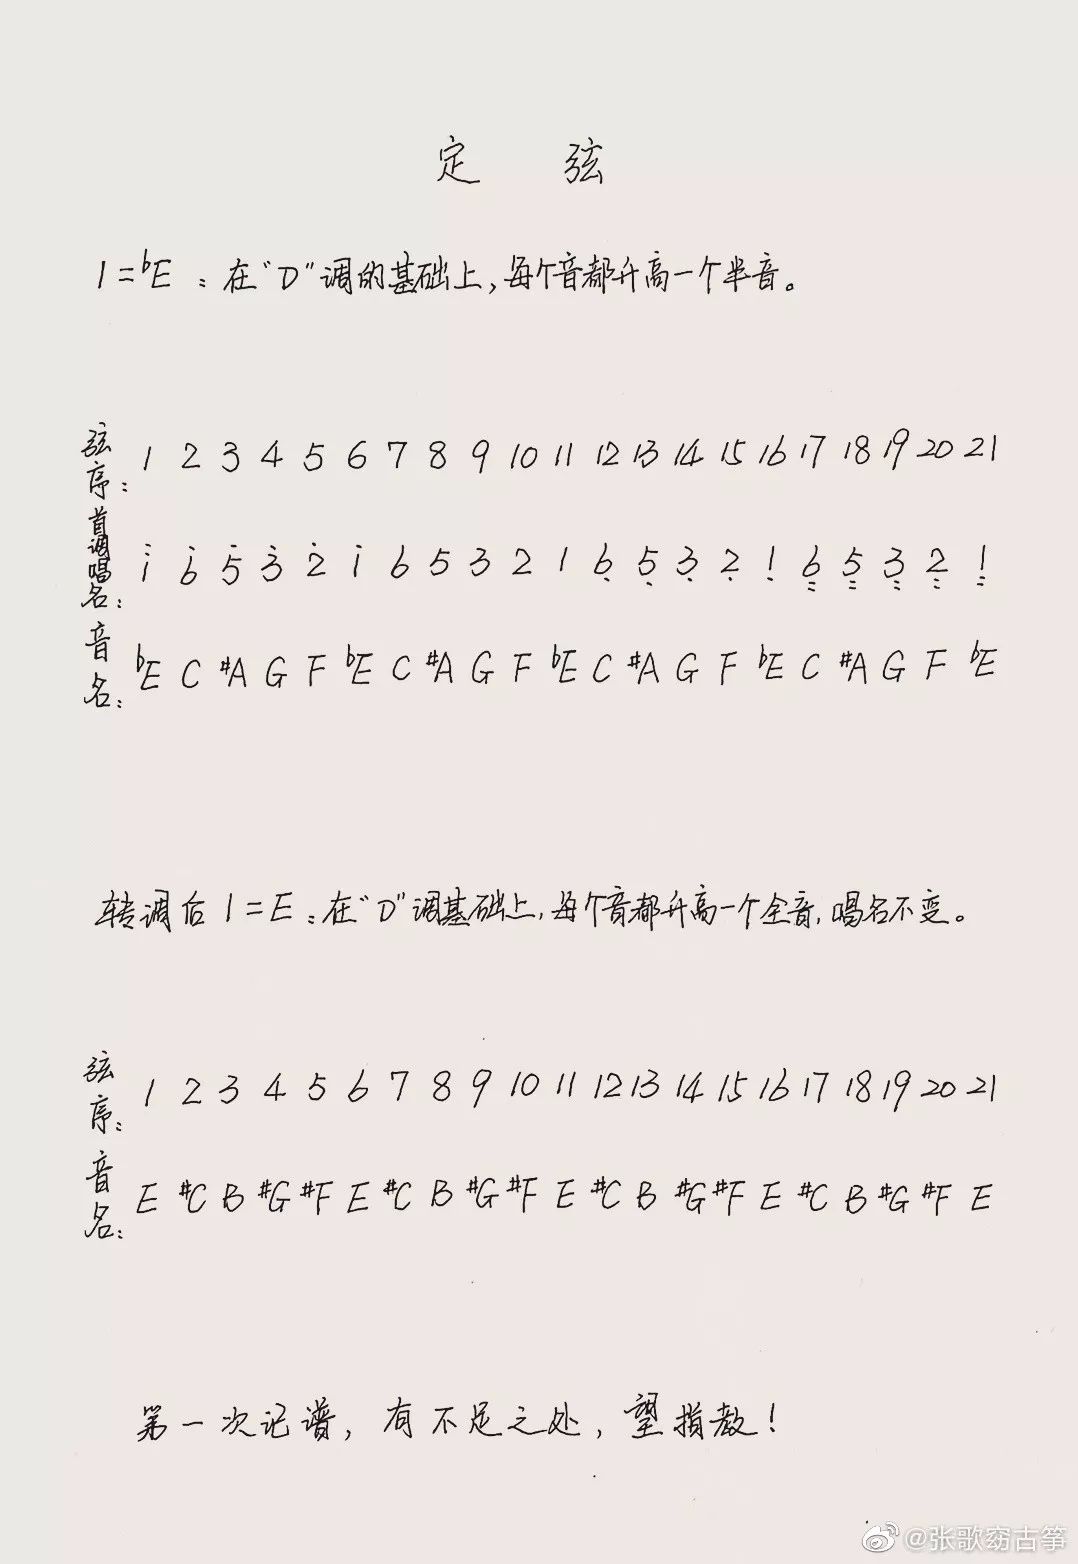 定 弦
1=ᵇE：在“D”调的基础上，每个音都升高一个半音。
弦序： 1 2 3 4 5 6 7 8 9 10 11 12 13 14 15 16 17 18 19 20 21
首调唱名： 1̈ 6̇ 5̇ 3̇ 2̇ 1̇ 6 5 3 2 1 6̣ 5̣ 3̣ 2̣ 1̣ 6̤ 5̤ 3̤ 2̤ 1̤
音名： ᵇE C #A G F ᵇE C #A G F ᵇE C #A G F ᵇE C #A G F ᵇE
转调后 1=E：在“D”调基础上，每个音都升高一个全音，唱名不变。
弦序： 1 2 3 4 5 6 7 8 9 10 11 12 13 14 15 16 17 18 19 20 21
音名： E #C B #G #F E #C B #G #F E #C B #G #F E #C B #G #F E
第一次记谱，有不足之处，望指教！
@张歌窈古筝